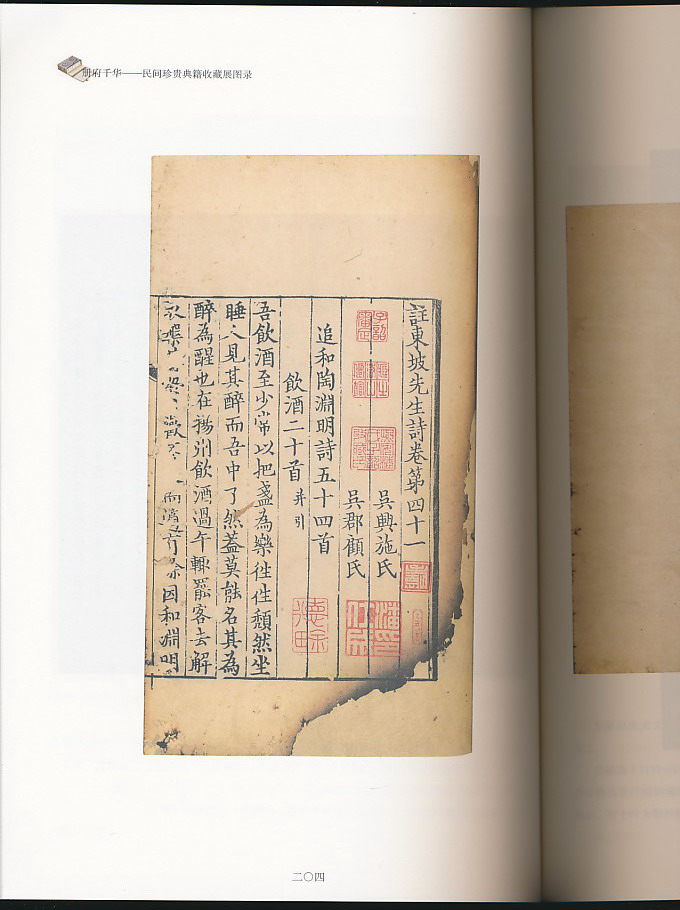 册府千华——民间珍贵典籍收藏展图录
註東坡先生詩卷第四十一
吳興施氏
吳郡顧氏
追和陶淵明詩五十四首
飲酒二十首 并引
吾飲酒至少常以把盞為樂往往頹然坐
睡人見其醉而吾中了然蓋莫能名其為
醉為醒也在揚州飲酒過午輒罷客去解
衣槃 歡 而適有餘因和淵明
德畬
二〇四